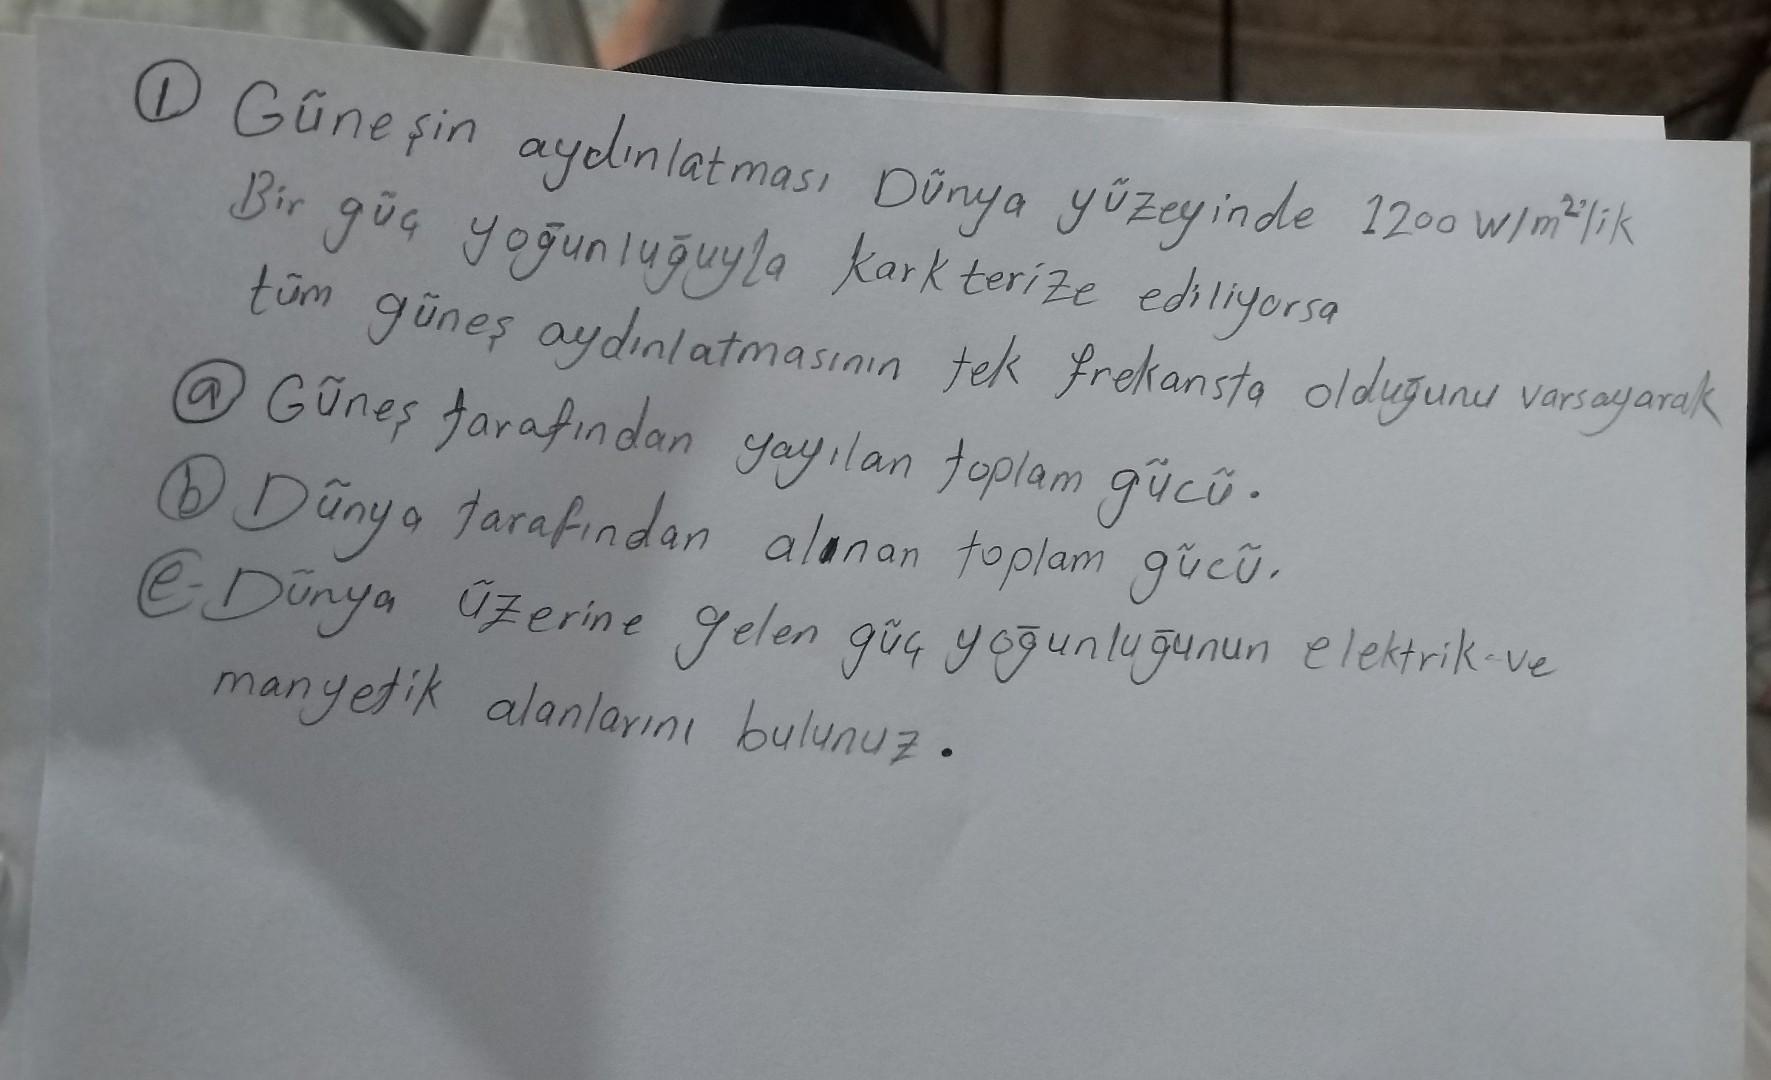 ① Güneşin aydınlatması Dünya yüzeyinde 1200 W/m²'lik
Bir güç yoğunluğuyla karkterize ediliyorsa
tüm güneş aydınlatmasının tek frekansta olduğunu varsayarak
ⓐ Güneş tarafından yayılan toplam gücü.
ⓑ Dünya tarafından alınan toplam gücü.
ⓔ- Dünya üzerine gelen güç yoğunluğunun elektrik-ve
manyetik alanlarını bulunuz.